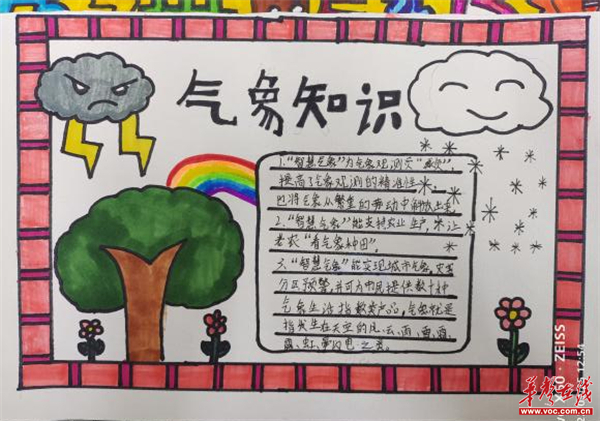 气象知识
1.“智慧气象”为气象观测 “ ”,
提高了气象观测的精准性,
也将气象从繁重的劳动中解放出来,
2.“智慧气象”能支持农业生产,不让
老农“看气象种田”,
3.“智慧气象”能实现城市气象,灾害
分区预警,并可为市民提供数十种
气象生活指数类产品,气象就是
指发生在天空的风、云、雨、
、虹、 闪电之类。
ZEISS
12:54
华声在线
www.voc.com.cn